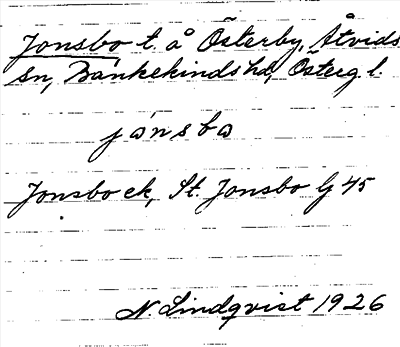 Jonsbo t. å Österby, Åtvids
sn, Bankekinds hd, Österg l.
jɷnsbɷ
Jonsbo ek, St. Jonsbo Gj 45
N. Lindqvist 1926